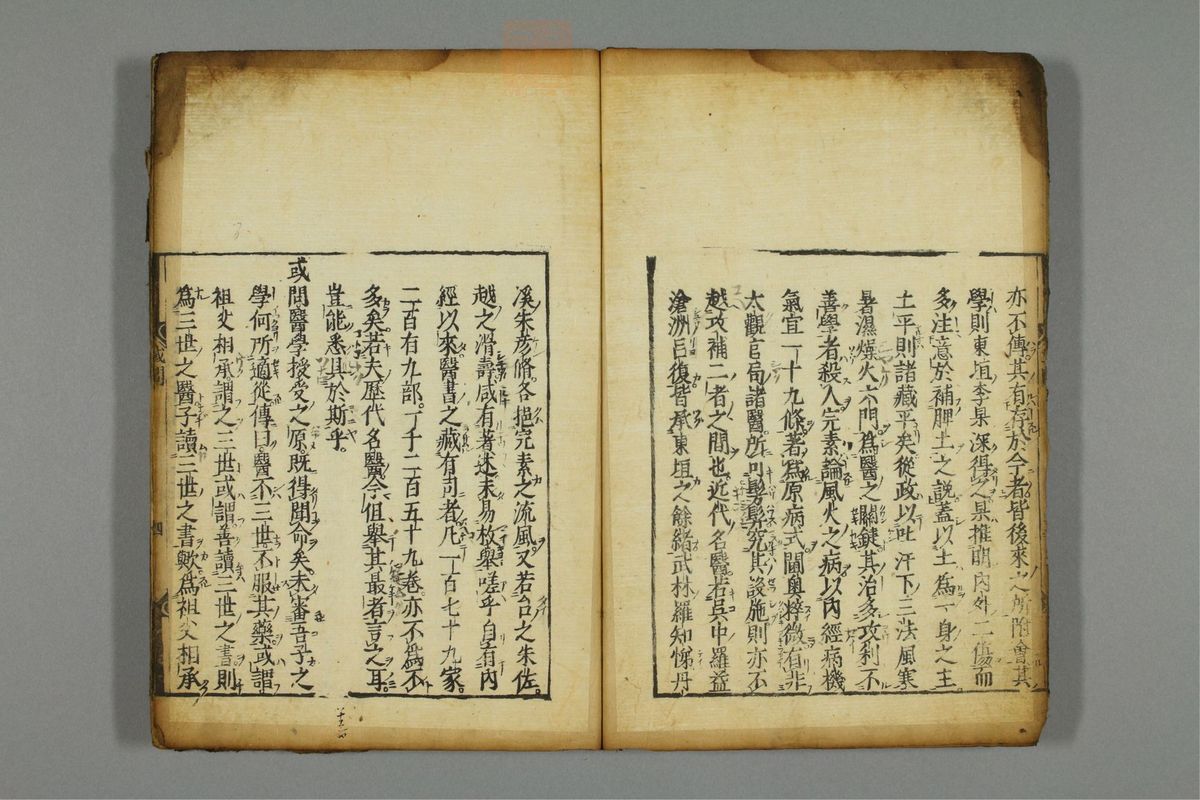 亦不傳其有存於今者皆後來之所附會其
學則東垣李杲深得之杲推明內外二傷而
多注意於補脾土之說蓋以土為一身之主
土平則諸藏平矣從政以吐汗下三法風寒
暑濕燥火六門為醫之關鍵其治多攻利不
善學者殺人完素論風火之病以內經病機
氣宜一十九條著為原病式閫奧粹微有非
太觀官局諸醫所可髣髴究其設施則亦不
越攻補二者之間也近代名醫若吳中羅益
滄洲呂復皆承東垣之餘緒武林羅知悌丹
溪朱彥脩各挹完素之流風又若台之朱佐
越之滑壽咸有著述未易枚舉嗟乎自有內
經以來醫書之藏有司者凡一百七十九家
二百有九部一千二百五十九卷亦不為不
多矣若夫歷代名醫今但舉其最者言之耳
豈能悉具於斯乎
或問醫學授受之原既得聞命矣未審吾子之
學何所適從傳曰醫不三世不服其藥或謂
祖父相承謂之三世或謂善讀三世之書則
為三世之醫子讀三世之書歟為祖父相承
或問
四